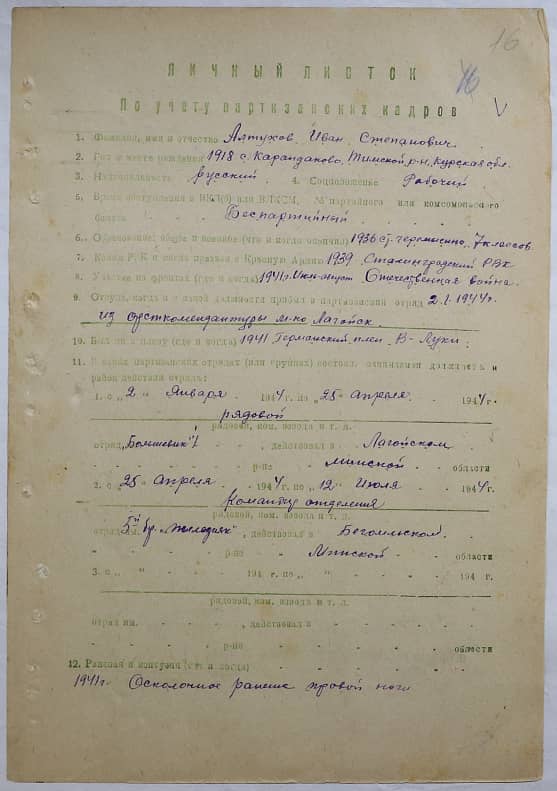 16
16
ЛИЧНЫЙ ЛИСТОК
По учету партизанских кадров
1. Фамилия, имя и отчество Алтухов Иван Степанович
2. Год и место рождения 1918 с. Карандаково, Тимской р-н, Курская обл.
3. Национальность русский 4. Соцположение Рабочий
5. Время вступления в ВКП(б) или ВЛКСМ, № партийного или комсомольского
билета Беспартийный
6. Образование: общее и военное (что и когда окончил) 1936 7 классов
7. Каким РВК и когда призван в Красную Армию 1939 Сталинградский РВК
8. Участие на фронтах (где и когда) 1941г. Отечественная война
9. Откуда, когда и с какой должности прибыл в партизанский отряд 2.1.1944г.
из орсткомендантуры м-ко Лагойск
10. Был ли в плену (где и когда) 1941 Германский плен В-Луки
11. В каких партизанских отрядах (или группах) состоял, занимаемая должность и
район действия отряда:
1. с „2" Января 1944 г. по „25" Апреля 1944 г.
рядовой
рядовой, ком. взвода и т. д.
отряд „Большевик" , действовал в Лагойском
р-не Минской области
2. с „25" Апреля 1944 г. по „12" Июля 4 г.
Командир отделения
рядовой, ком. взвода и т. д.
отряд им. 5й бр. „Железняк" , действовал в Бегомльском
р-не Минской области
3. с „ " 194 г. по „ " 194 г.
рядовой, ком. взвода и т. д.
отряд им. , действовал в
р-не области
12. Ранения и контузии (где и когда)
1941г. Осколочное ранение правой ноги